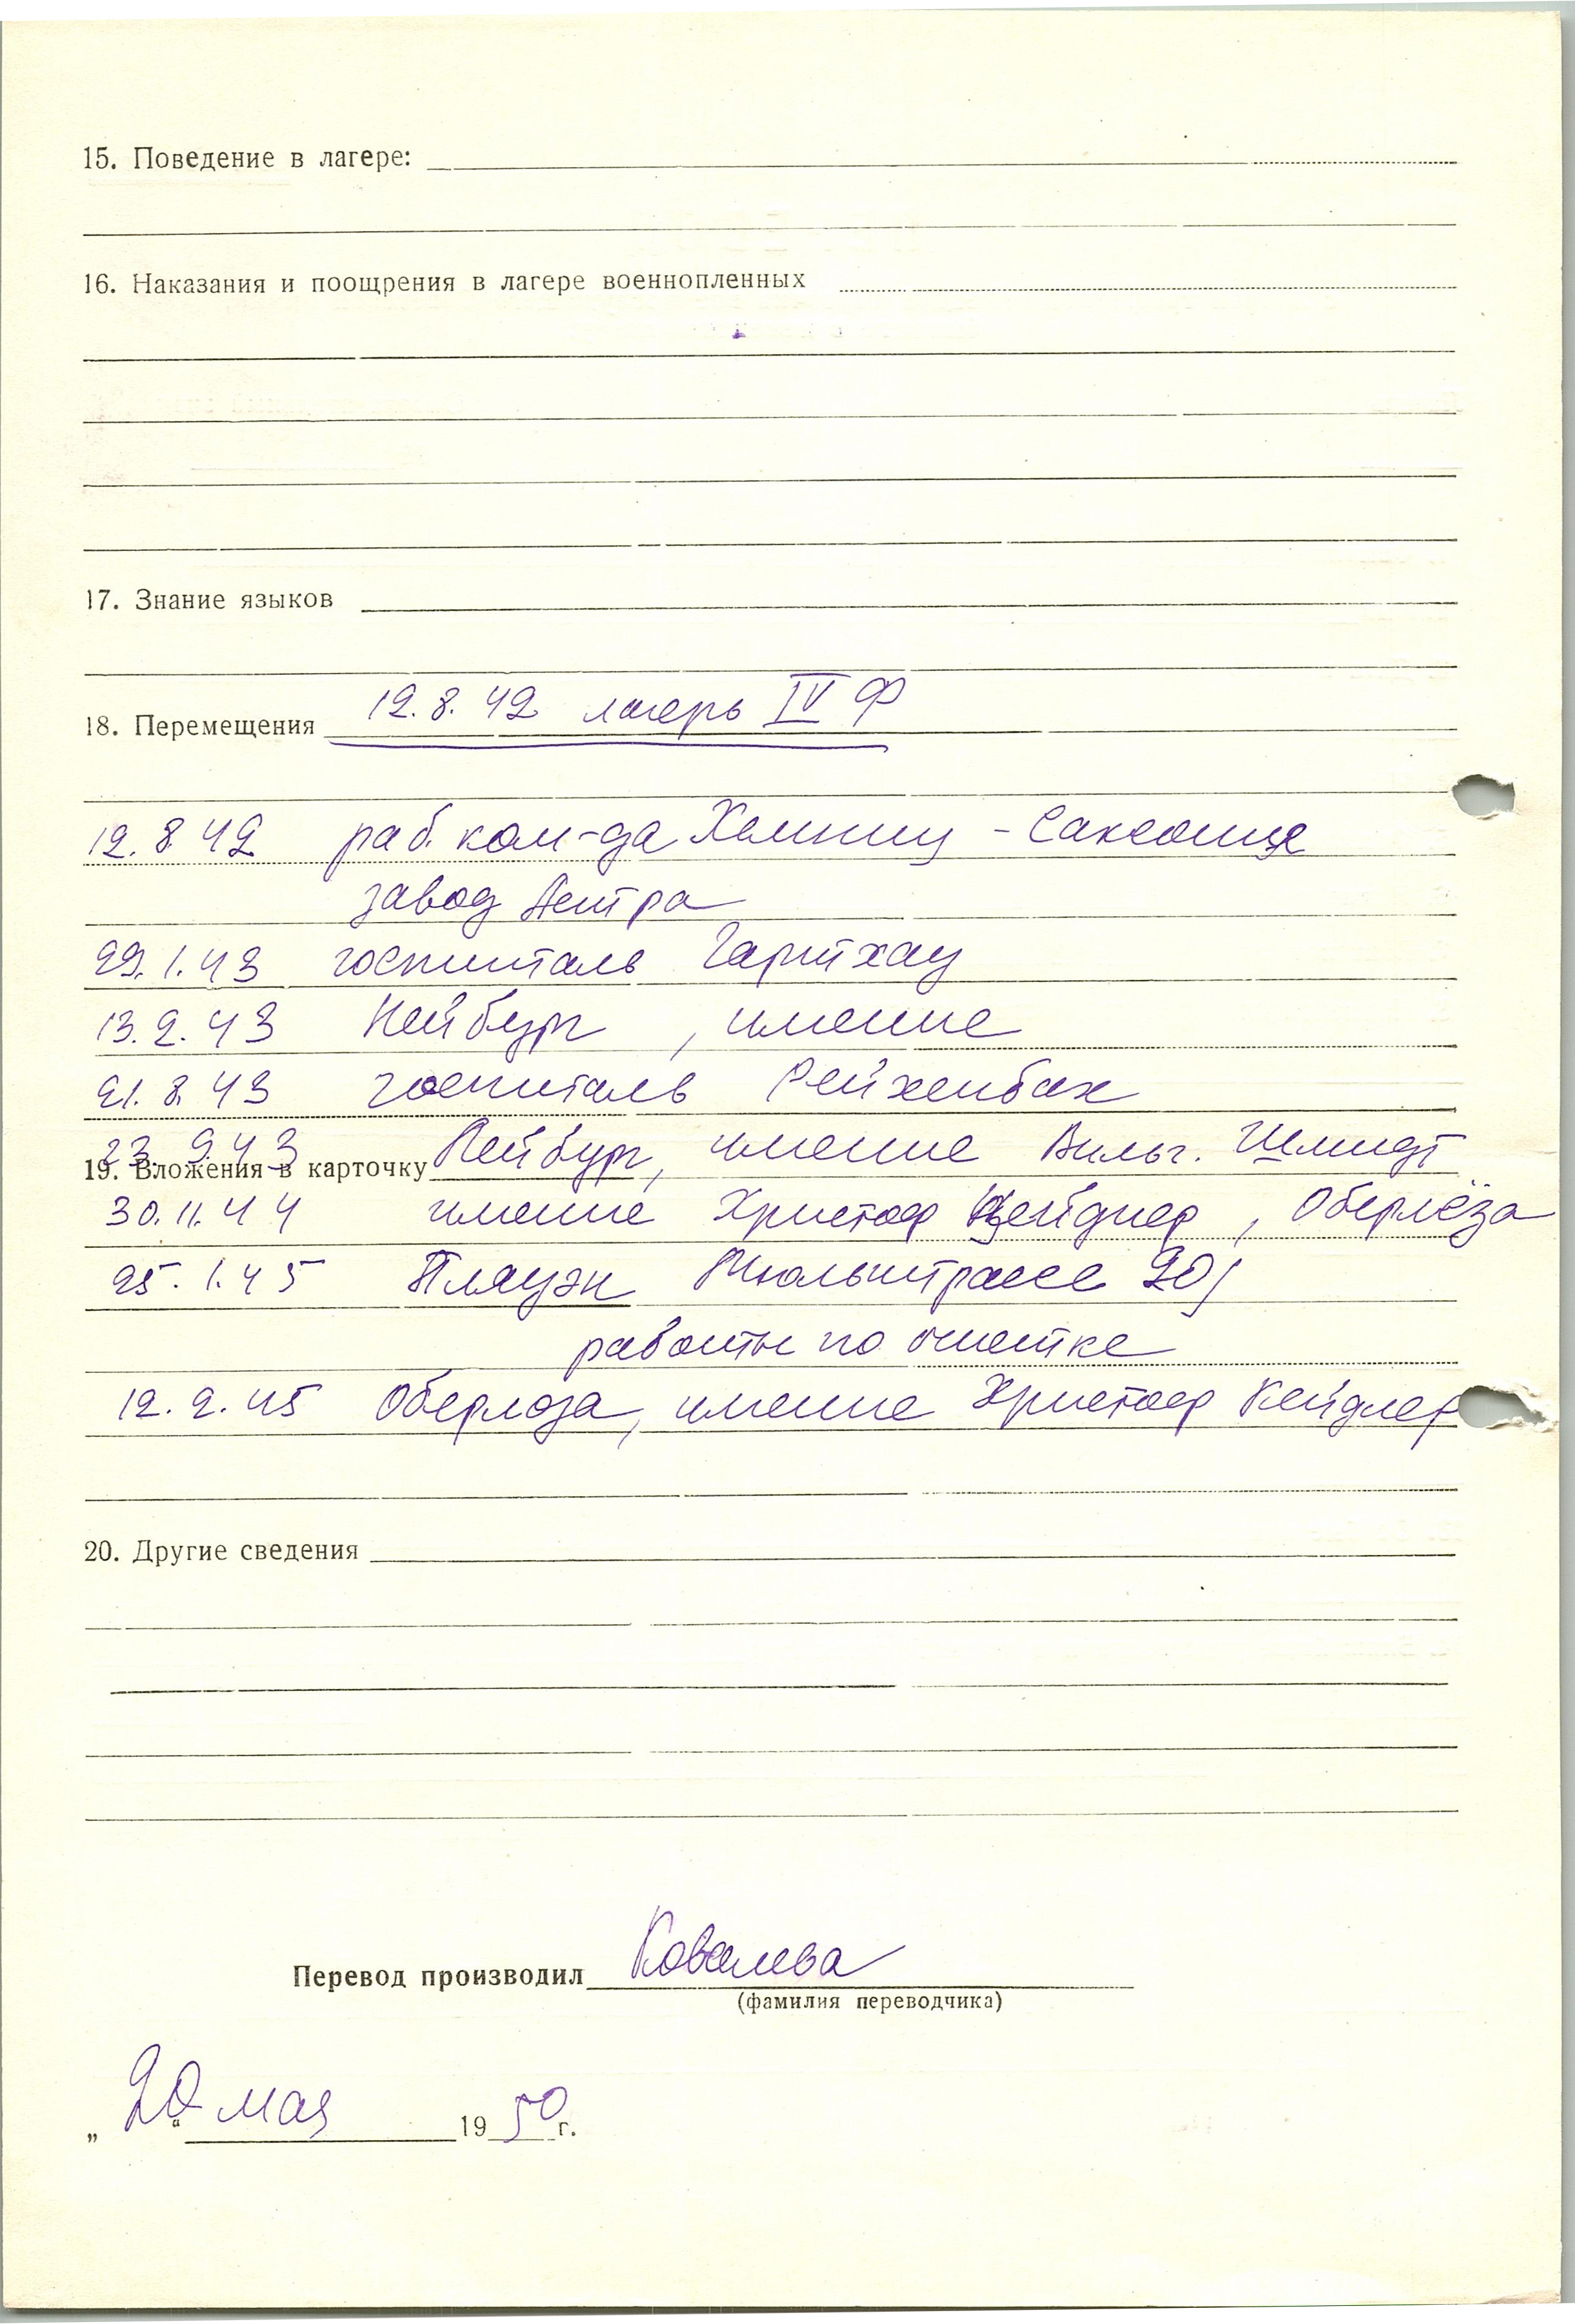 15. Поведение в лагере:
16. Наказания и поощрения в лагере военнопленных
17. Знание языков
18. Перемещения 12.8.42 лагерь IV Ф
12.8.42 раб. ком-да Хемниц - Саксония
завод Астра
29.1.43 госпиталь Гартхау
13.2.43 Нейбург, имение
21.8.43 госпиталь Рейхенбах
23.9.43 Нейбург, имение Вильг. Шмидт
19. Вложения в карточку
30.11.44 имение Христоф Цейднер, Оберлёза
25.1.45 Плауэн 20
работы по очистке
12.2.45 Оберлоза, имение Христоф Кейдлер
20. Другие сведения
Перевод производил Ковалева
(фамилия переводчика)
„ 20 “ мая 1950 г.